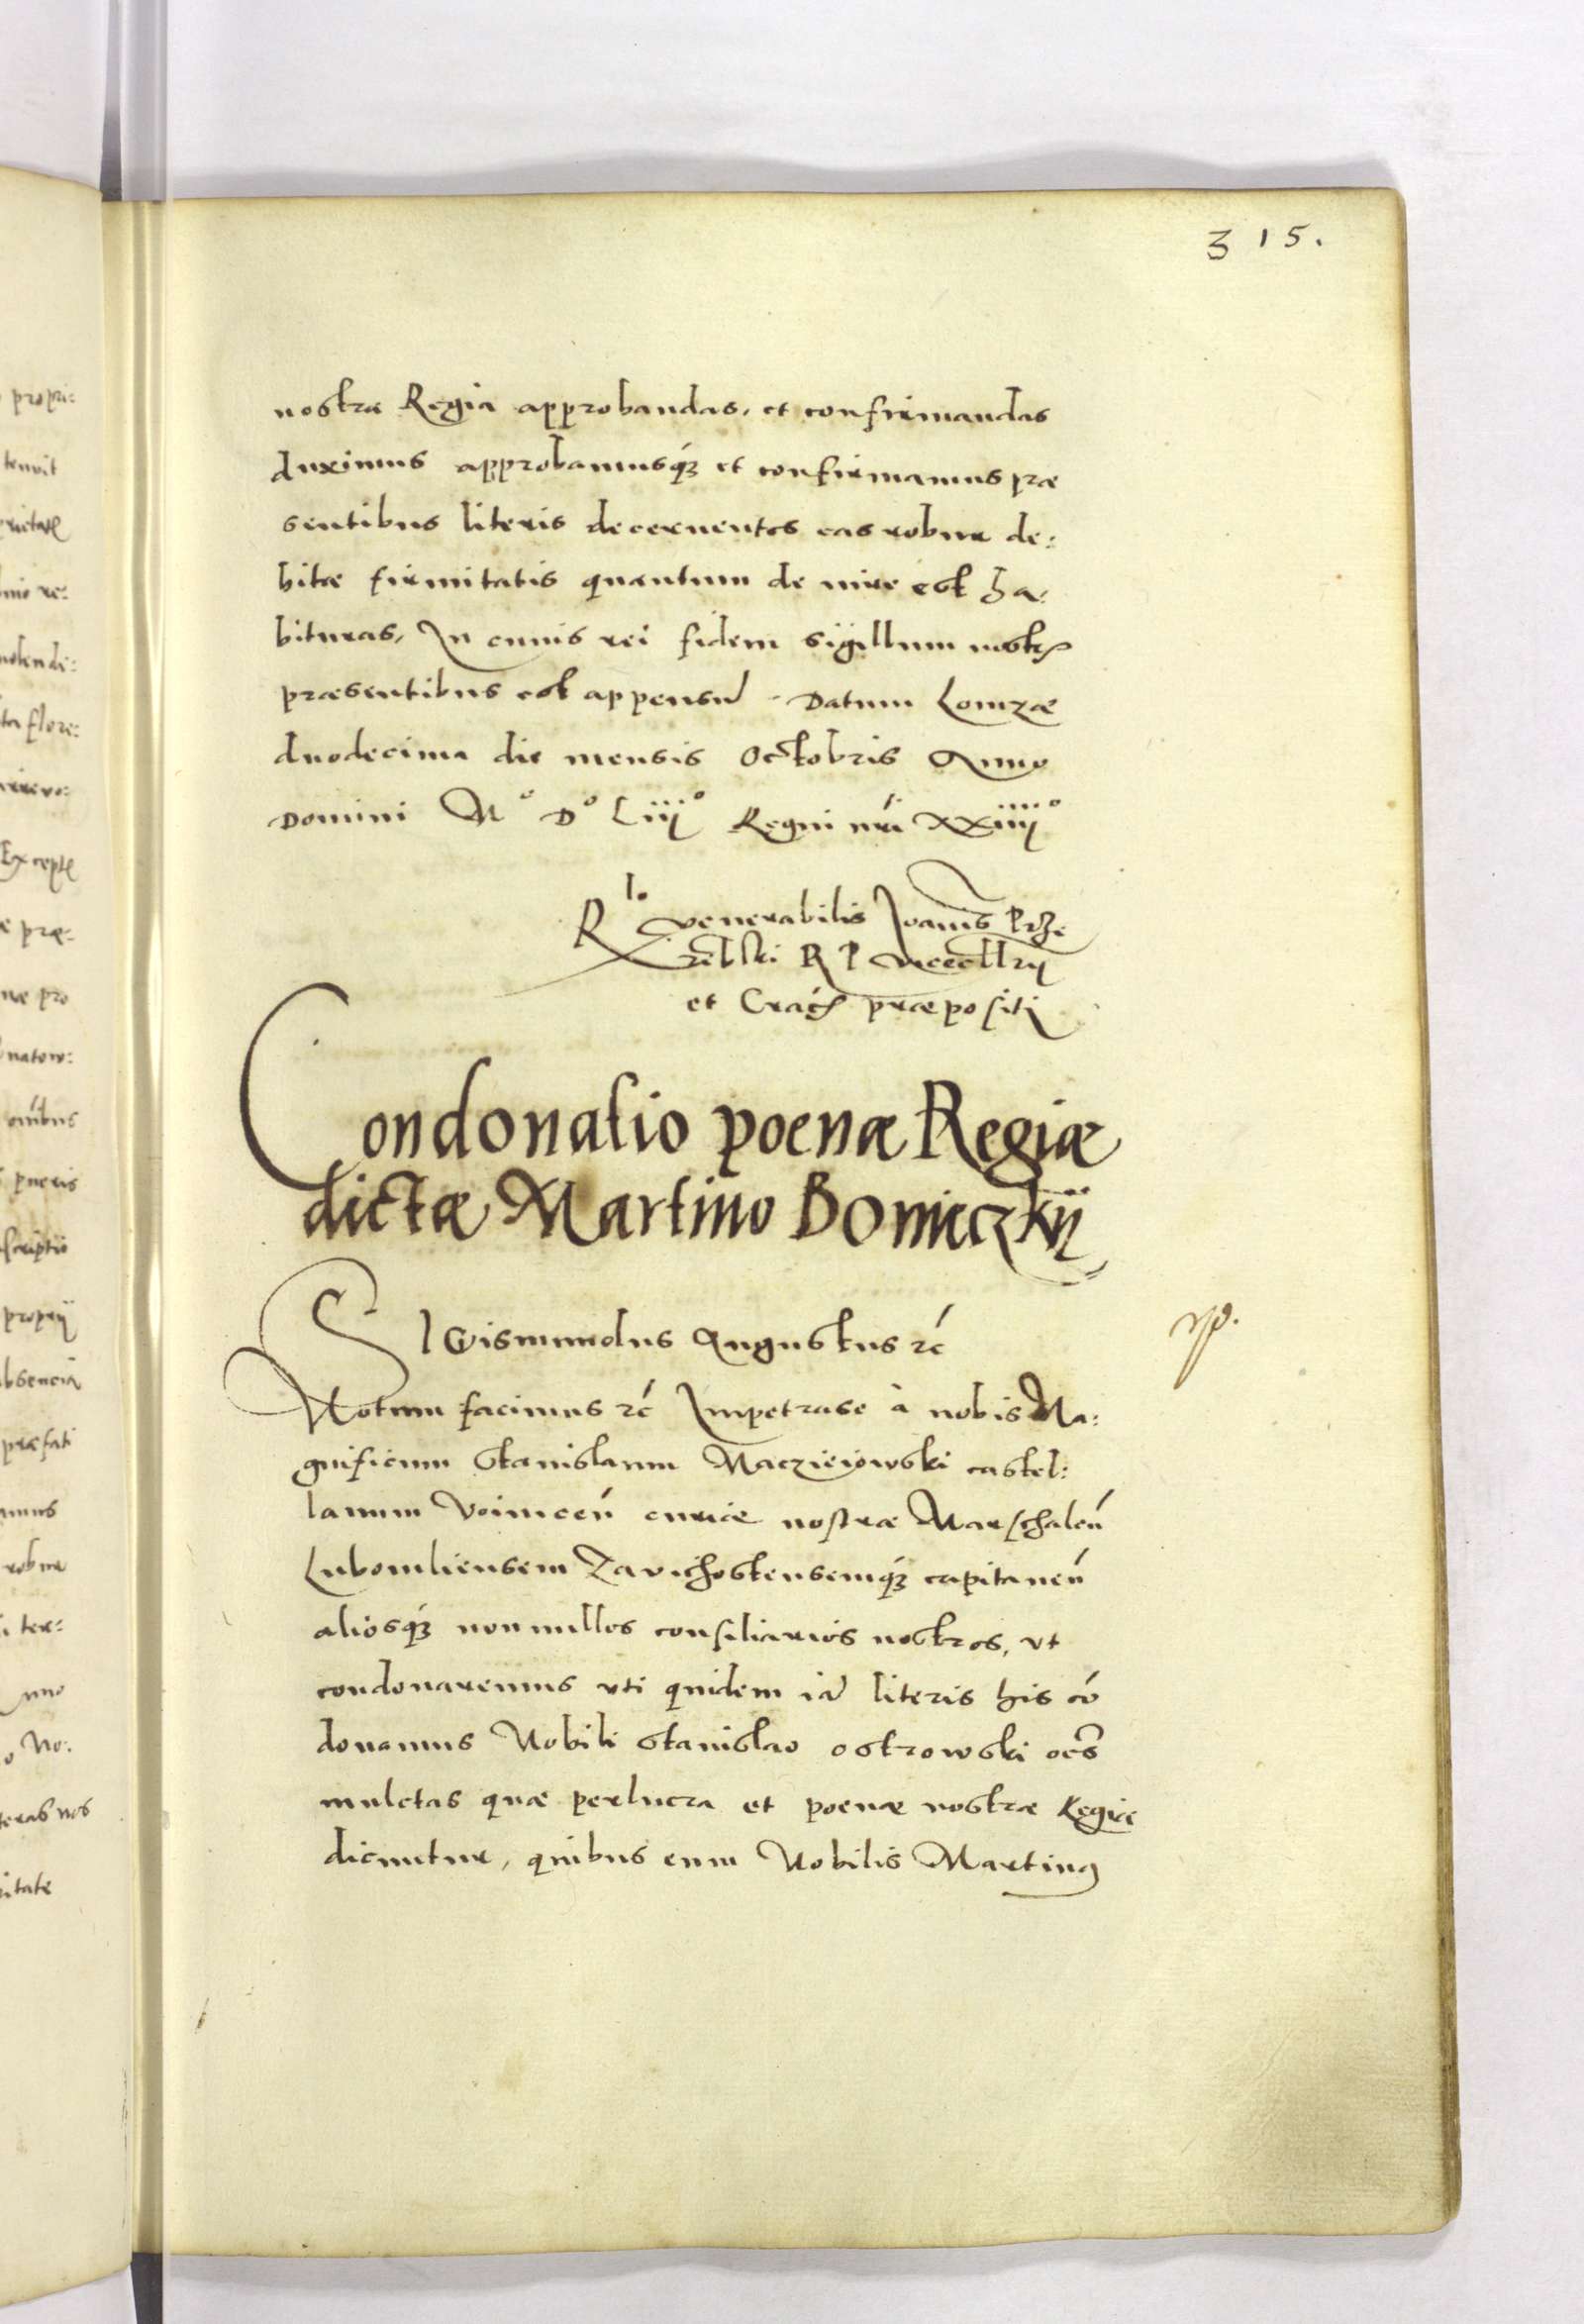 315.
nostra Regia approbandas, et confirmandas
duximus approbamusq₃ et confirmamus præ
sentibus literis decernentes eas robur de:
bitæ firmitatis quantum de iure est ha:
bituras, In cuius rei fidem sigillum nostꝝ
præsentibus est appensū. Datum Lomzæ
duodecima die mensis Octobris Anno
Domini M° D° Liiij° Regni nr̃i XXiiij°
R^lo venerabilis Joannis Prze
rẽbski R P vicecllrij
et Crac̃ præpositi
Condonatio poenæ Regiæ
dictæ Martino Boniczkij
SIGismundus Augustus rc̃
Notum facimus rc̃ Impetrase à nobis Ma:
gnificum Stanislaum Maczieiowski castel:
lanum Voinicen̄ curiæ nostræ Marschalcū
Lubomliensem Zavichostensemq₃ capitaneū
aliosq₃ nonnullos consiliarios nostros, vt
condonaremus vti quidem iā literis his cō
donamus Nobili Stanislao Ostrowski oẽs
mulctas quæ perlucra et poenæ nostræ Regiæ
dicuntur, quibus eum Nobilis Martinꝰ
propri:
tenuit
re:
flore:
præ:
pro
natow:
onĩbus
pueris
proprij
absencia
præfati
robur
ter:
No:
nos